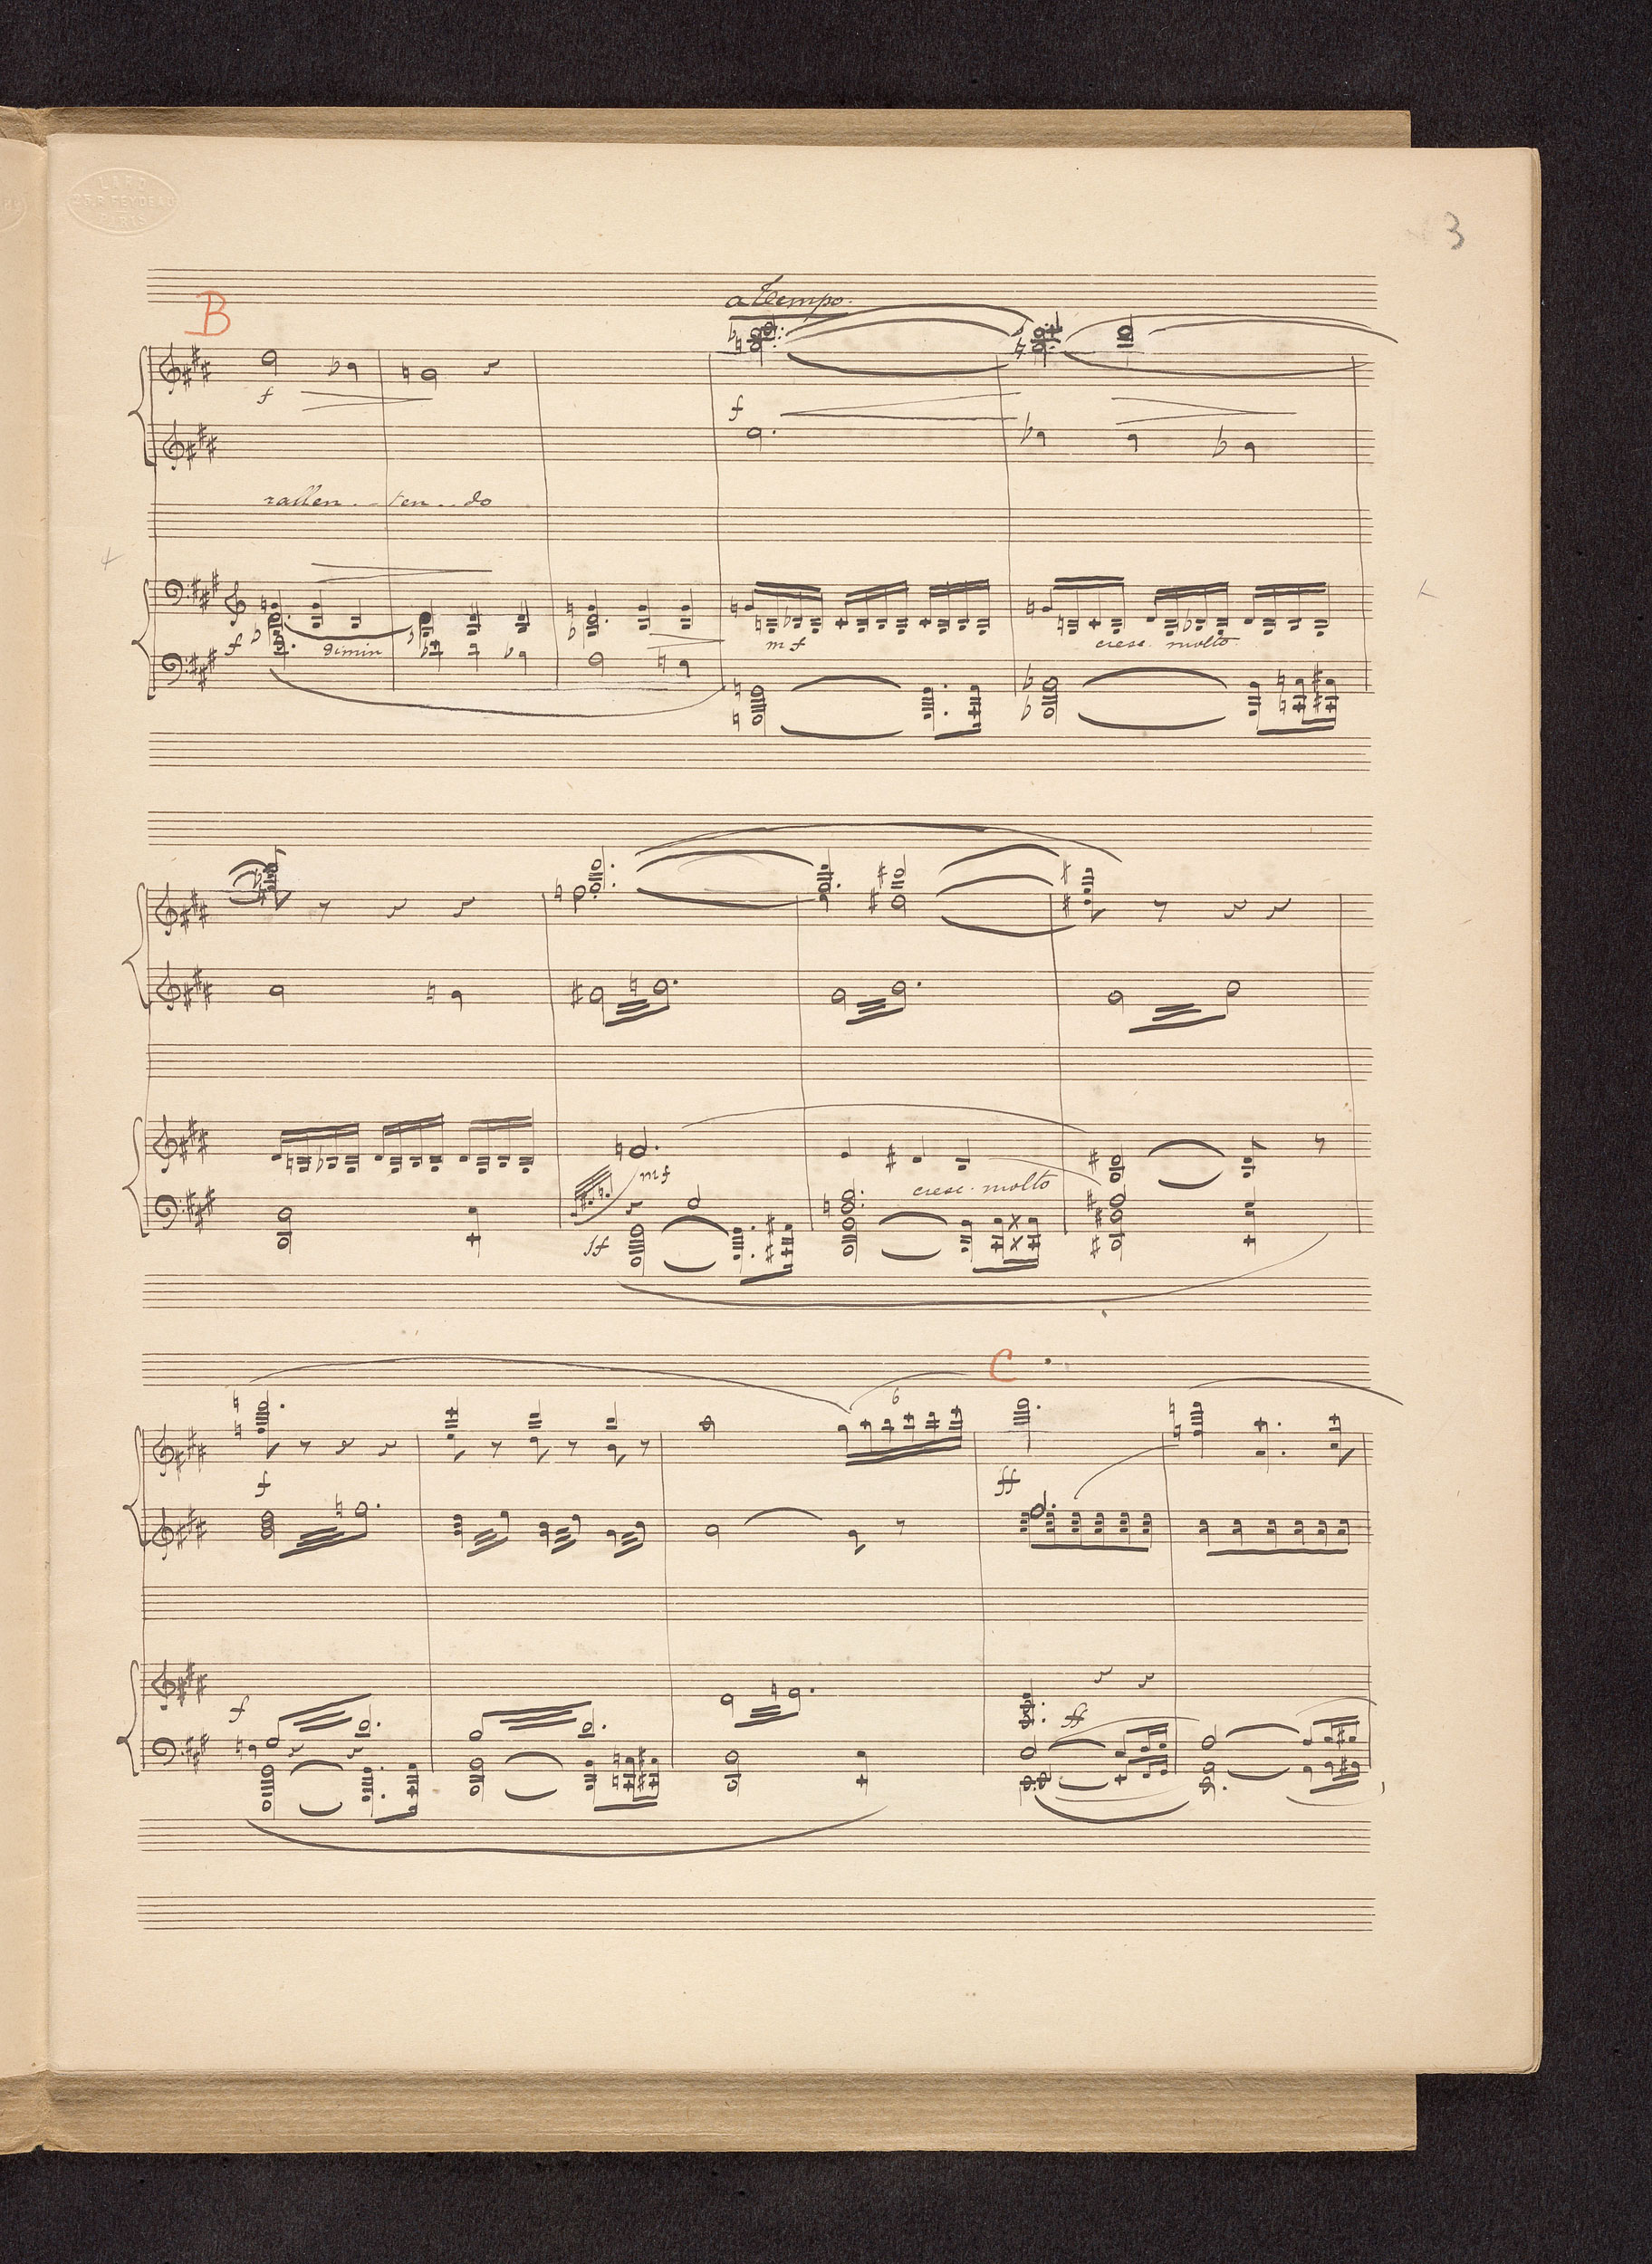 LARD
25, R. FEYDEAU
PARIS
3
B
a Tempo.
f
f
rallen - - ten - - do
f
dimin
mf
cresc. molto.
mf
cresc. molto
ff
C
6
f
ff
f
ff